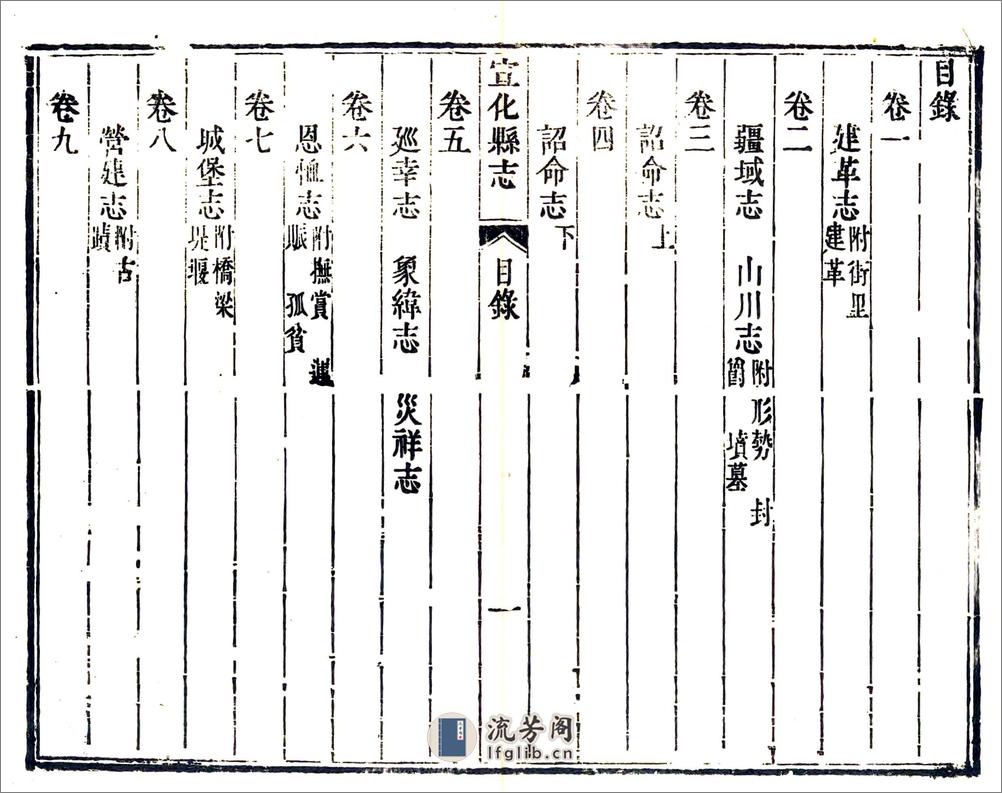 目錄
卷一
建革志 附街里
建革
卷二
疆域志 山川志 附形勢 封
爵 墳墓
卷三
詔命志 上
卷四
詔命志 下
宣化縣志 目錄 一
卷五
廵幸志 象緯志 災祥志
卷六
恩恤志 附撫賞
賑 孤貧
卷七
城堡志 附橋梁
堤堰
卷八
營建志 附古
蹟
卷九
流芳阁
lfglib.cn